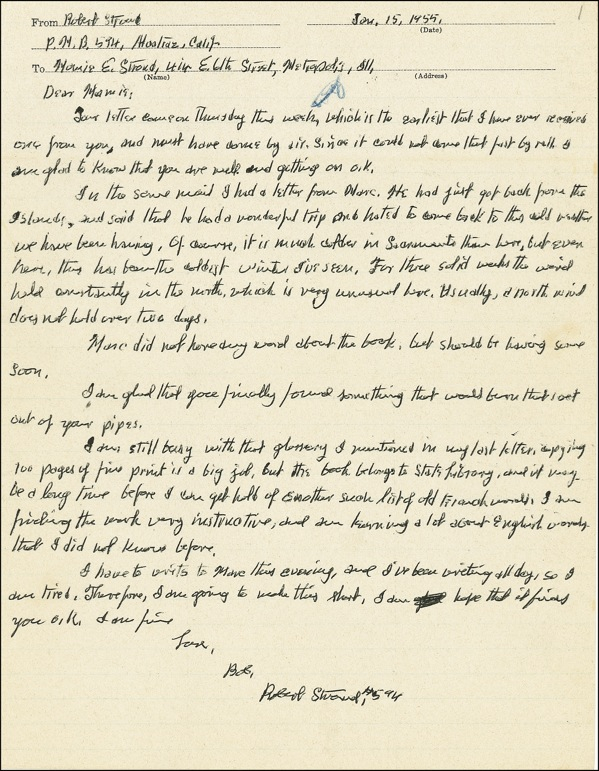 1
From Robert Stroud Jan, 15, 1955,
(Date)
P.M.B. 594, Alcatraz, Calif
To Mamie E. Stroud, E. 6th Street, Metropolis, Ill,
(Name) (Address)
Dear Mamie;
Your letter came on Thursday this week, which is the earliest that I have ever received
one from you, and must have come by air. Since it could not come that fast by rail. I
am glad to know that you are well and getting on o.k.
In the same mail I had a letter from Marc. He had just got back from the
Islands, and said that he had a wonderful trip and hated to come back to this cold weather
we have been having. Of course, it is much colder in Sacramento than here, but even
here, this has been the coldest winter I've seen. For three solid weeks the wind
held constantly in the north, which is very unusual here. Usually, a north wind
does not hold over two days.
Marc did not have any word about the book, but should be having some
soon.
I am glad that you finally found something that would burn that soot
out of your pipes.
I am still busy with that glossary I mentioned in my last letter, copying
700 pages of fine print is a big job, but the book belongs to State Library, and it may
be a long time before I can get hold of another such list of old French words. I am
finding the work very instructive, and am learning a lot about English words
that I did not know before.
I have to write to Marc this evening, and I've been writing all day, so I
am tired. Therefore, I am going to make this short. I am hope that it finds
you o.k. I am fine
Love,
Bob,
Robert Stroud, #594